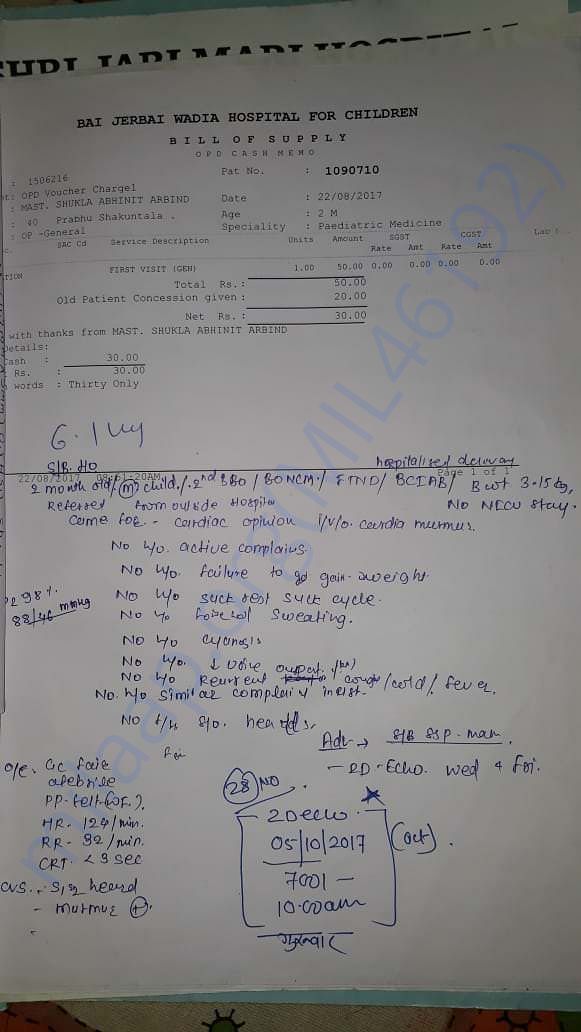 SHRI JARI MARI HOSPITAL
BAI JERBAI WADIA HOSPITAL FOR CHILDREN
BILL OF SUPPLY
OPD CASH MEMO
: 1506216 Pat No. : 1090710
nt: OPD Voucher Charge1
: MAST. SHUKLA ABHINIT ARBIND Date : 22/08/2017
: 40 Prabhu Shakuntala . Age : 2 M
: OP -General Speciality : Paediatric Medicine
SAC Cd Service Description Units Amount SGST CGST
Rate Amt Rate Amt
TION
FIRST VISIT (GEN) 1.00 50.00 0.00 0.00 0.00 0.00
Total Rs.: 50.00
Old Patient Concession given: 20.00
Net Rs. : 30.00
with thanks from MAST. SHUKLA ABHINIT ARBIND
Details:
Cash : 30.00
Rs. : 30.00
words : Thirty Only
6.1 kg
S/B. HO hospitalised delivery
22/08/2017 Page 1 of 1
2 month old/(m) child/2nd BBO/BONCM/FTND/BCIAB/ Bwt 3.15 kg,
Referred from outside Hospital No NICU stay.
Came for - cardiac opinion i/v/o. cardia murmur.
No h/o. active complains.
No h/o. failure to gain weight.
98%. No h/o suck rest suck cycle.
88/46 mmHg No h/o forehead sweating.
No h/o cyanosis
No h/o. ↓ urine output.
No h/o Recurrent cough/cold/fever.
No. h/o similar complain in
No f/h s/o. heart ds,
Adv → S/B SSP. mam.
o/e. GC fair - 2D-Echo. wed & Fri.
afebrile
PP-felt
HR- 124/min.
RR- 32/min.
CRT- < 3 sec
CVS. S1,2 heard
- murmur (+)
28 NO
2D echo
05/10/2017 (oct).
7001 -
10.00am
गुरुवार
milaap.org(MIL46192)